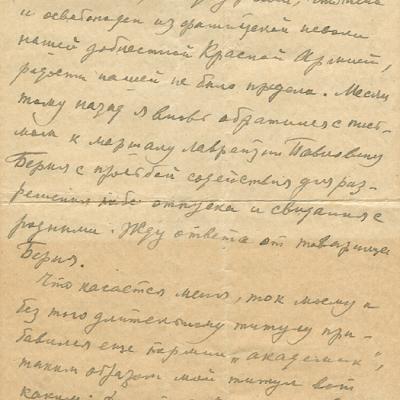 и освобожден из фашистской неволи
нашей доблестной Красной Армией,
радости нашей не было предела. Месяц
тому назад я вновь обратился с пись-
мом к маршалу Лаврентию Павловичу
Берия с просьбой содействия для раз-
решения тебе отпуска и свидания с
родными. Жду ответа от товарища
Берия.
Что касается меня, то к моему и
без того длительному титулу при-
бавился еще термин „академик",
таким образом мой титул вот
каким: